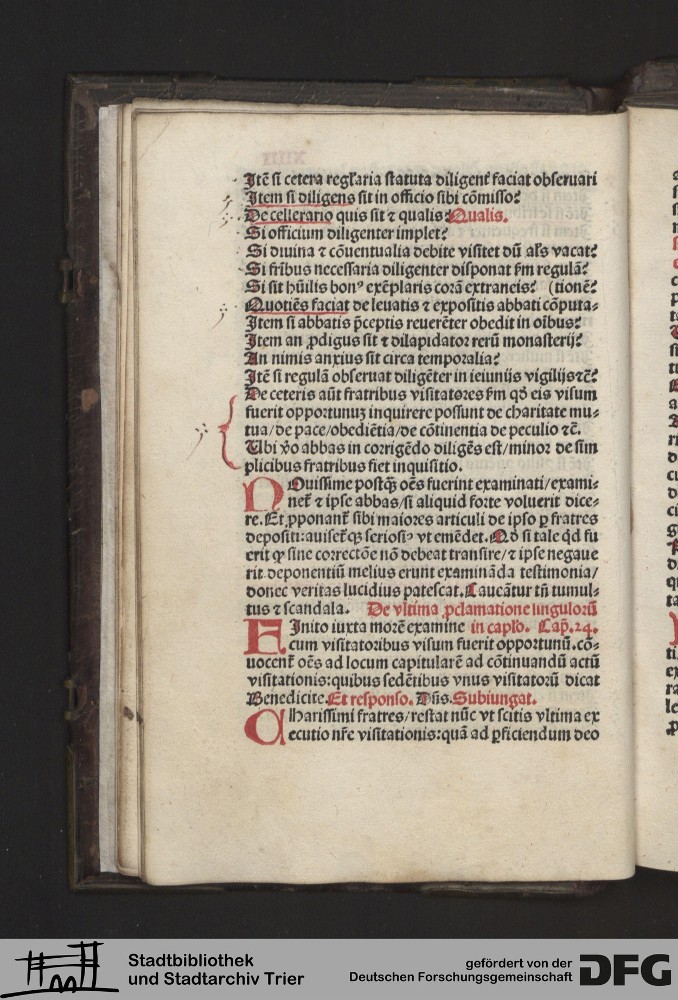 Itē si cetera regl'aria statuta diligent̄ faciat obseruari
Item si diligens sit in officio sibi cōmisso?
De cellerario quis sit ⁊ qualis? Qualis.
Si officium diligenter implet?
Si diuina ⁊ cōuentualia debite visitet dū al's vacat?
Si frībus necessaria diligenter disponat ẜm regulā?
Si sit hūilis bonꝰ exēplaris corā extraneis? (tionē?
Quotiēs faciat de leuatis ⁊ expositis abbati cōputa-
Item si abbatis p̄ceptis reuerēter obedit in oībus?
Item an ꝓdigus sit ⁊ dilapidator rerū monasterij?
An nimis anxius sit circa temporalia?
Itē si regulā obseruat diligēter in ieiunijs vigilijs ⁊c̄?
De ceteris aūt fratribus visitatores ẜm qd̓ eis visum
fuerit opportunuꝫ inquirere possunt de charitate mu-
tua/de pace/obediētia/de cōtinentia de peculio ⁊c̄.
Ubi v̓o abbas in corrigēdo diligēs est/minor de sim
plicibus fratribus fiet inquisitio.
NOuissime postꝙ̄ oēs fuerint examinati/exami-
net̄ ⁊ ipse abbas/si aliquid forte voluerit dice-
re. Et ꝓponant̄ sibi maiores articuli de ipso ꝑ fratres
depositi: auiset̄qꝫ seriosiꝰ vt emēdet. Nō si tale qd̓ fu
erit ꝙ sine correctōe nō debeat transire/⁊ ipse negaue
rit deponentiū melius erunt examināda testimonia/
donec veritas lucidius patescat. Caueātur tn̄ tumul-
tus ⁊ scandala. De vltima ꝓclamatione singulorū
FInito iuxta morē examine in capl'o. Cap̄. 24.
cum visitatoribus visum fuerit opportunū. cō-
uocent̄ oēs ad locum capitularē ad cōtinuandū actū
visitationis: quibus sedētibus vnus visitatorū dicat
Benedicite. Et responso. Dn̄s. Subiungat.
CHarissimi fratres/restat nūc vt scitis vltima ex
ecutio nr̄e visitationis: quā ad ꝑficiendum deo
Stadtbibliothek
und Stadtarchiv Trier
gefördert von der
Deutschen Forschungsgemeinschaft
DFG